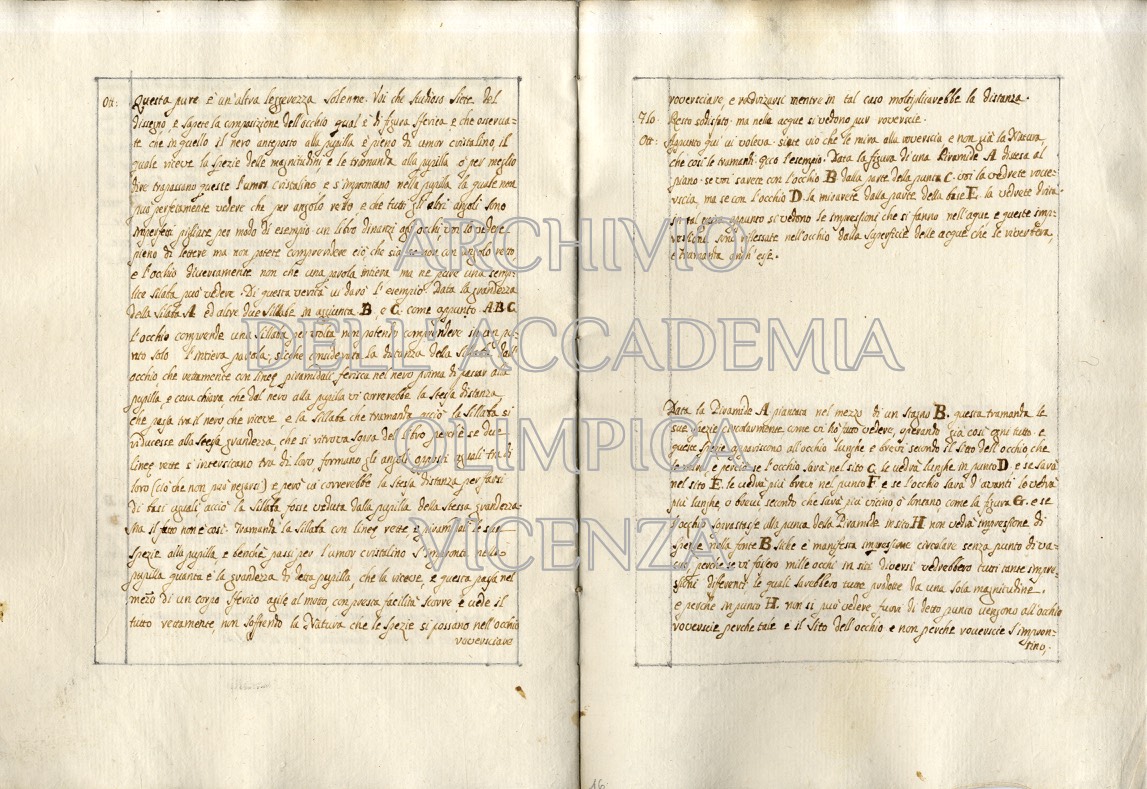 Ott: Questa pure è un'altra leggerezza solenne. Voi che studioso siete del
dissegno, e sapete la composizione dell'occhio qual è di figura sferica, e che osserva-
te che in quello il nero anteposto alla pupilla è pieno di umor cristalino, il
quale riceve la spezie delle magnitudini, e le tramanda alla pupilla o per meglio
dire trapassano queste l'umor cristalino e s'improntano nella pupilla, la quale non
può perfetamente vedere che per angolo retto e che tutti gl'altri angoli sono
imperfeti pigliate per modo di esempio un libro dinanzi agl'occhi voi lo vedete
pieno di lettere ma non potete comprendere ciò che sia se non con angolo retto
e l'occhio diversamente non che una parola intiera ma ne pure una semp-
lice silaba può vedere. Di questa verità vi darò l'esempio. Data la grandezza
della silaba A ed altre due sillabe in aggiunta B, e C. come appunto ABC
l'occhio comprende una sillaba per volta non potendo comprendere in un pu-
nto solo l'intiera parola; sicche considerata la distanza della sillaba dall'
occhio che rettamente con linee piramidali ferisca nel nero prima di passar alla
pupilla, è cosa chiara che dal nero alla pupilla vi correrebbe la stessa distanza
che passa tra il nero che riceve, e la sillaba che tramanda acciò la sillaba si
riducesse alla stessa grandezza, che si ritrova sopra del libro perchè se due
linee rette s'intersicano trà di loro, formano gli angoli opposti eguali trà di
loro (ciò che non può negarsi) e però vi correrebbe la stessa distanza per farsi
di basi eguali acciò la silaba fosse veduta dalla pupilla della stessa grandezza.
Ma il fatto non è così. Tramanda la sillaba con linee rette e piramidali le sue
spezie alla pupilla, e benchè passi per l'umor cristalino s'impronta nella
pupilla quanta è la grandezza di detta pupilla, che la riceve, e questa posta nel
mezo di un corpo sferico agile al moto con presta facilità scorre e vede il
tutto rettamente, non soffrendo la Natura che le spezie si possano nell'occhio
roversciare
roversciare, e radrizzarsi mentre in tal caso moltiplicarebbe la distanza.
Resto sodisfato. ma nelle acque si vedono pur roverscie.
Ott: Appunto qui vi voleva. siete viò che le mira alla roverscia e non già la Natura,
che così le tramandi. Ecco l'esempio. Data la figura di una Piramide A distesa al
piano. se voi sarete con l'occhio B dalla parte della punta C. voi la vedrete rover-
scia, ma se con l'occhio D. la mirarete dalla parte della base E. la vedrete drita.
in tal guisa appunto si vedono le impressioni che si fanno nell'aque e queste imp-
ressioni sono riflessate nell'occhio dalla superficie delle acque che le riverbera,
e tramanda
Data la Piramide A. piantata nel mezzo di un stagno B. questa tramanda le
sue spezie circolarmente come vi hò fatto vedere, operando già così ogni tutto. e
queste spezie appariscono all'occhio lunghe e brevi secondo il sito dell'occhio che
e perciò se l'occhio sarà nel sito C. le vedrà lunghe in punto D. e se sarà
nel sito E. le vedrà più brevi nel punto F e se l'occhio sarà d'avanti le vedrà
più lunghe, o brevi secondo che sarà più vicino o lontano come la figura G. e se
l'occhio sovrastasse alla punta della Piramide in sito H non vedrà impressione di
spezie nella fonte B. siche è manifesta impressione circolare senza punto di va-
cuo perchè se vi fossero mille occhi in siti diversi vedrebbero tutti tante impre-
ssioni diferenti le quali sarebbero tutte prodote da una sola magnitudine.
e perchè in punto H. non si può vedere fuori di detto punto vengono all'occhio
roverscie perche tale è il sito dell'occhio e non perche roverscie s'impron-
tino.
16
ARCHIVIO
DELL'ACCADEMIA
OLIMPICA
VICENZA